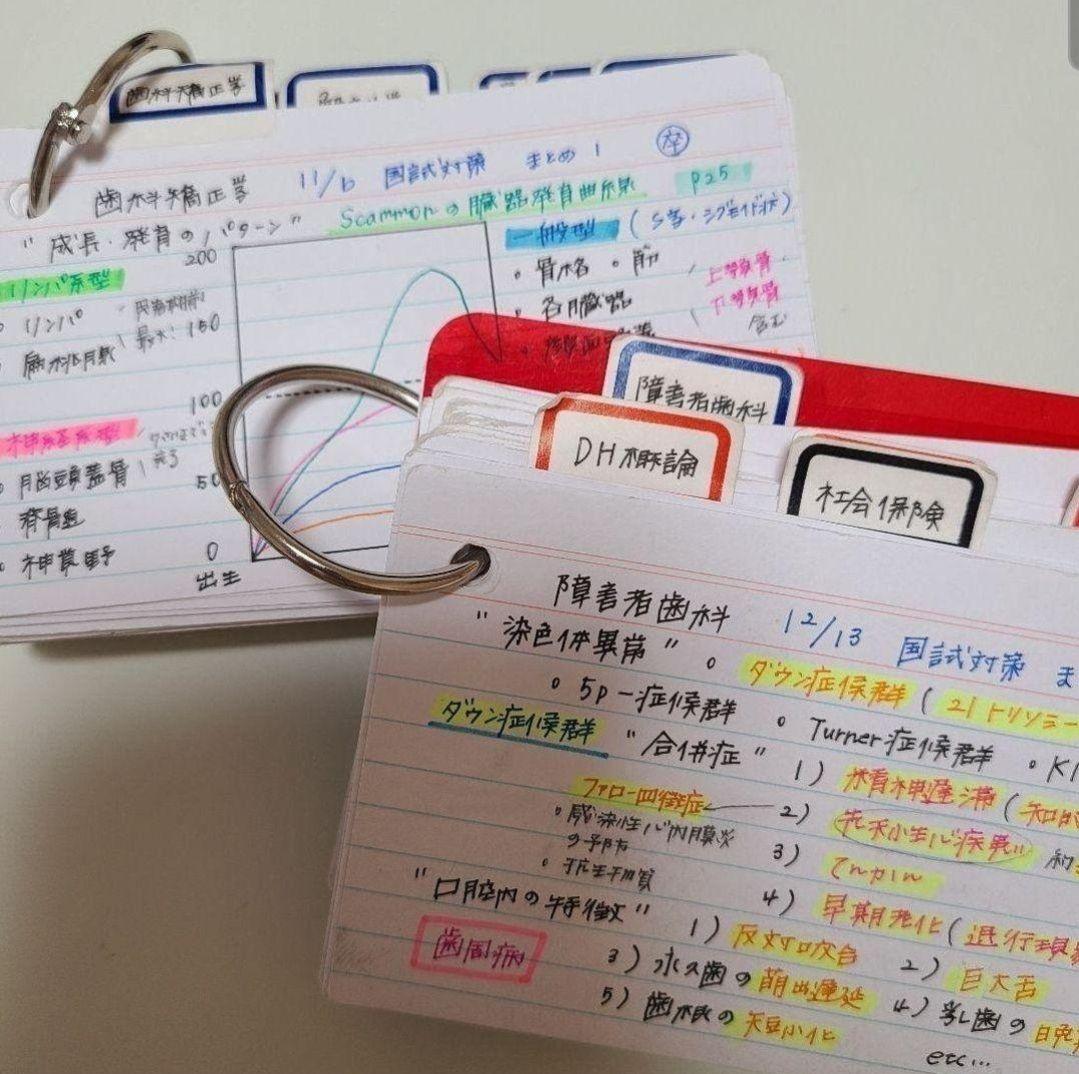 歯科矯正学
歯科矯正学 11/6 国試対策 まとめ1 卒
"成長・発育のパターン" Scammonの臓器発育曲線 P25
リンパ系型 200 一般型 (S字・シグモイド状)
。骨格 。筋
。リンパ 150 。各臓器 上顎骨
。扁桃 下顎骨
含む
100
神経系型
。脳頭蓋骨 50
。脊髄
。神菅野 0
出生
障害者歯科
DH概論
社会保険
障害者歯科 12/13 国試対策 ま
"染色体異常" 。ダウン症候群 (21トリソミー
。5p-症候群 。Turner症候群 。Kl
ダウン症候群 "合併症" 1) 精神遅滞 (知的
ファロー四徴症 2) 先天性心疾患 約
。感染性心内膜炎
の予防 3) てんかん
。抗生物質
4) 早期老化 (退行現象
"口腔内の特徴" 1) 反対咬合 2) 巨大舌
歯周病 3) 永久歯の萌出遅延 4) 乳歯の晩
5) 歯根の短小化
etc...